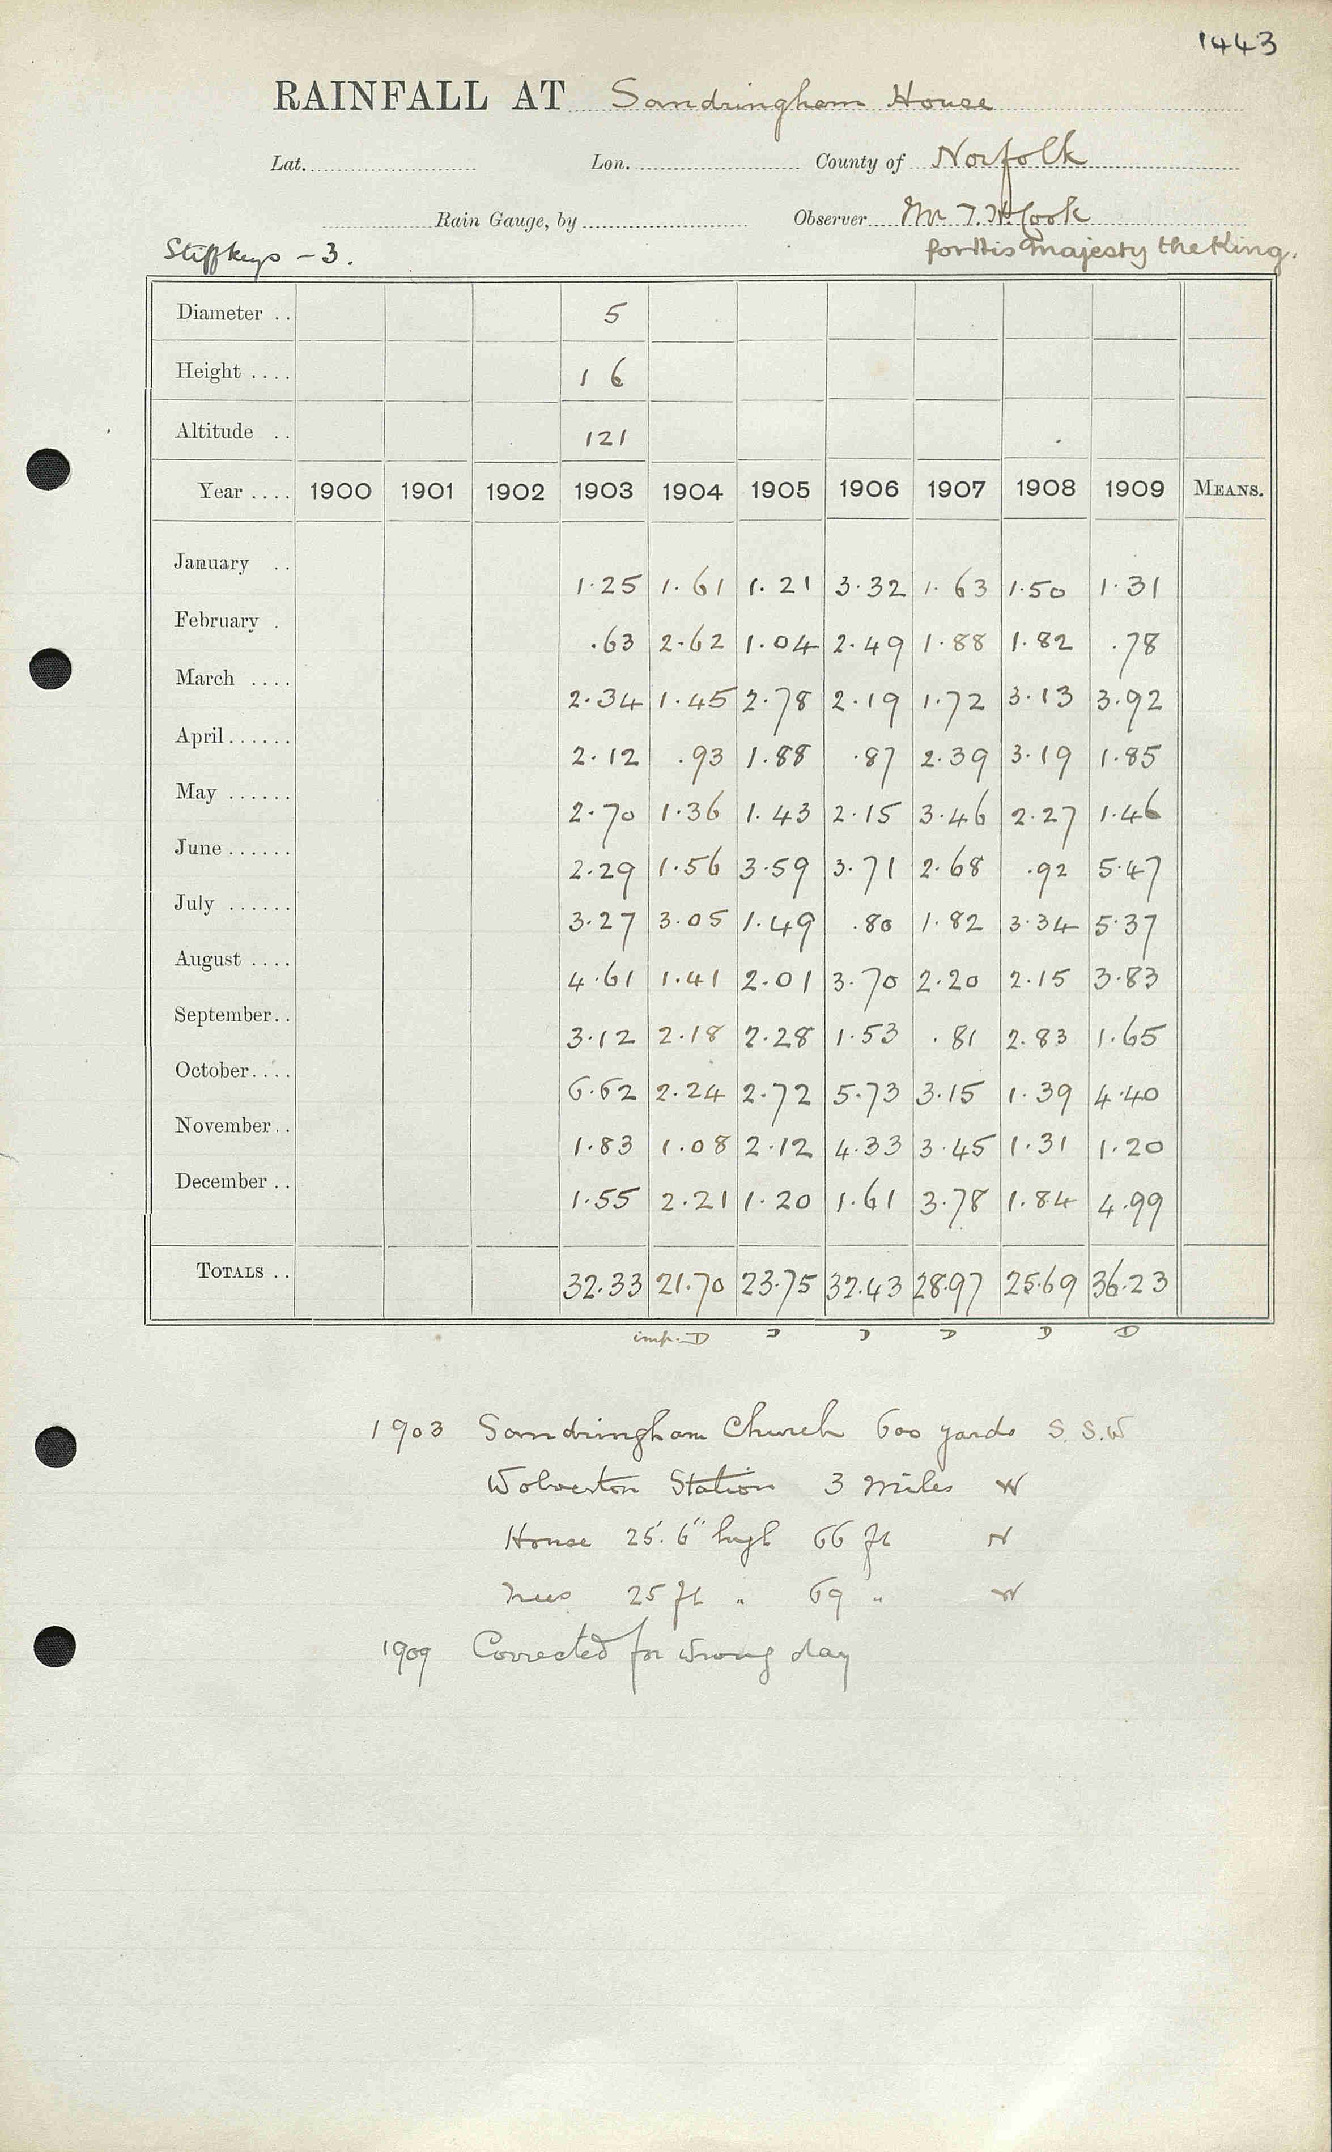 1443
RAINFALL AT Sandringham House
Lat. Lon. County of Norfolk
Rain Gauge, by Observer Mr T. H. Cook
Stiffkeys - 3. for His Majesty the King.
Diameter .. 5
Height .... 1 6
Altitude .. 121
Year .... 1900 1901 1902 1903 1904 1905 1906 1907 1908 1909 MEANS.
January .. 1.25 1.61 1.21 3.32 1.63 1.50 1.31
February . .63 2.62 1.04 2.49 1.88 1.82 .78
March .... 2.34 1.45 2.78 2.19 1.72 3.13 3.92
April...... 2.12 .93 1.88 .87 2.39 3.19 1.85
May ...... 2.70 1.36 1.43 2.15 3.46 2.27 1.46
June ...... 2.29 1.56 3.59 3.71 2.68 .92 5.47
July ...... 3.27 3.05 1.49 .80 1.82 3.34 5.37
August .... 4.61 1.41 2.01 3.70 2.20 2.15 3.83
September.. 3.12 2.18 2.28 1.53 .81 2.83 1.65
October.... 6.62 2.24 2.72 5.73 3.15 1.39 4.40
November.. 1.83 1.08 2.12 4.33 3.45 1.31 1.20
December .. 1.55 2.21 1.20 1.61 3.78 1.84 4.99
TOTALS .. 32.33 21.70 23.75 32.43 28.97 25.69 36.23
imp. D D D D D D
1903 Sandringham Church 600 yards S. S.W
Wolverton Station 3 miles W
House 25'. 6" high 66 ft N
Trees 25 ft " 69 " W
1909 Corrected for wrong day